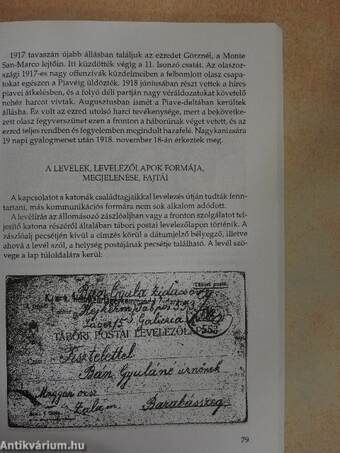 1917 tavaszán újabb állásban találjuk az ezredet Görznél, a Monte
San-Marco lejtőin. Itt küzdötték végig a 11. Isonzó csatát. Az olaszor-
szági 1917-es nagy offenzívák küzdelmeiben a felbomlott olasz csapa-
tokat egészen a Piavéig üldözték. 1918 júniusában részt vettek a híres
piavei átkelésben, és a folyó déli partján nagy véráldozatokat követelő
nehéz harcot vívtak. Augusztusban ismét a Piave-deltában kerültek
állásba. Ez volt az ezred utolsó harci tevékenysége, mert a bekövetke-
zett olasz fegyverszünet ezen a fronton a háborúnak véget vetett, és az
ezred teljes rendben és fegyelemben megindult hazafelé. Nagykanizsára
19 napi gyalogmenet után 1918. november 18-án érkeztek meg.
A LEVELEK, LEVELEZŐLAPOK FORMÁJA,
MEGJELENÉSE, FAJTÁI
A kapcsolatot a katonák családtagjaikkal levelezés útján tudták fenn-
tartani, más kommunikációs formára nem sok alkalom adódott.
A levélírás az állomásozó zászlóaljban vagy a fronton szolgálatot tel-
jesítő katona részéről általában tábori postai levelezőlapon történik. A
zászlóalj pecsétjén kívül a címzés körül a dátumjelző bélyegző, illetve
ahová a levél szól, a helység postájának pecsétje található. A levél szö-
vege a lap túloldalára kerül:
Bán Gyula
553
Lager
Galicia
TÁBORI POSTAI LEVELEZŐLAP
553
Tisztelettel
Bán Gyuláné urnőnek
Magyar orsz
Zala m. Barabásszeg
79
Antikvárium.hu